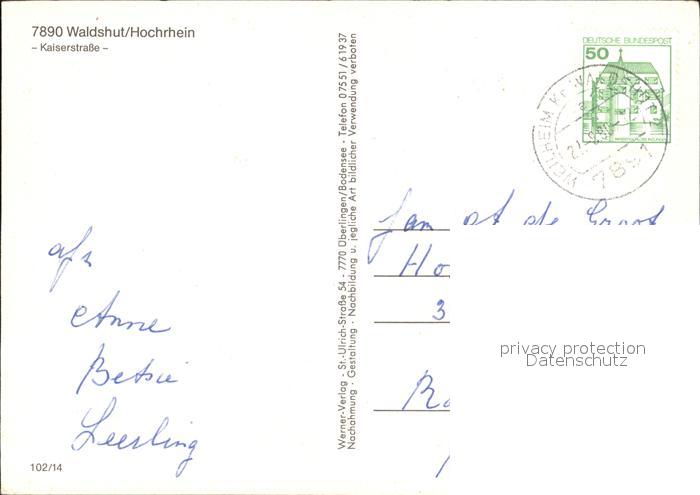 7890 Waldshut/Hochrhein
– Kaiserstraße –
afz
Anne
Betsie
Leerling
102/14
Werner-Verlag - St.-Ulrich-Straße 54 - 7770 Überlingen/Bodensee - Telefon 07551/61937
Nachahmung - Gestaltung - Nachbildung u. jegliche Art bildlicher Verwendung verboten
DEUTSCHE BUNDESPOST
50
WEILHEIM Kr WALDSHUT
7891
Fam
de Groot
Ho
3
privacy protection
Datenschutz